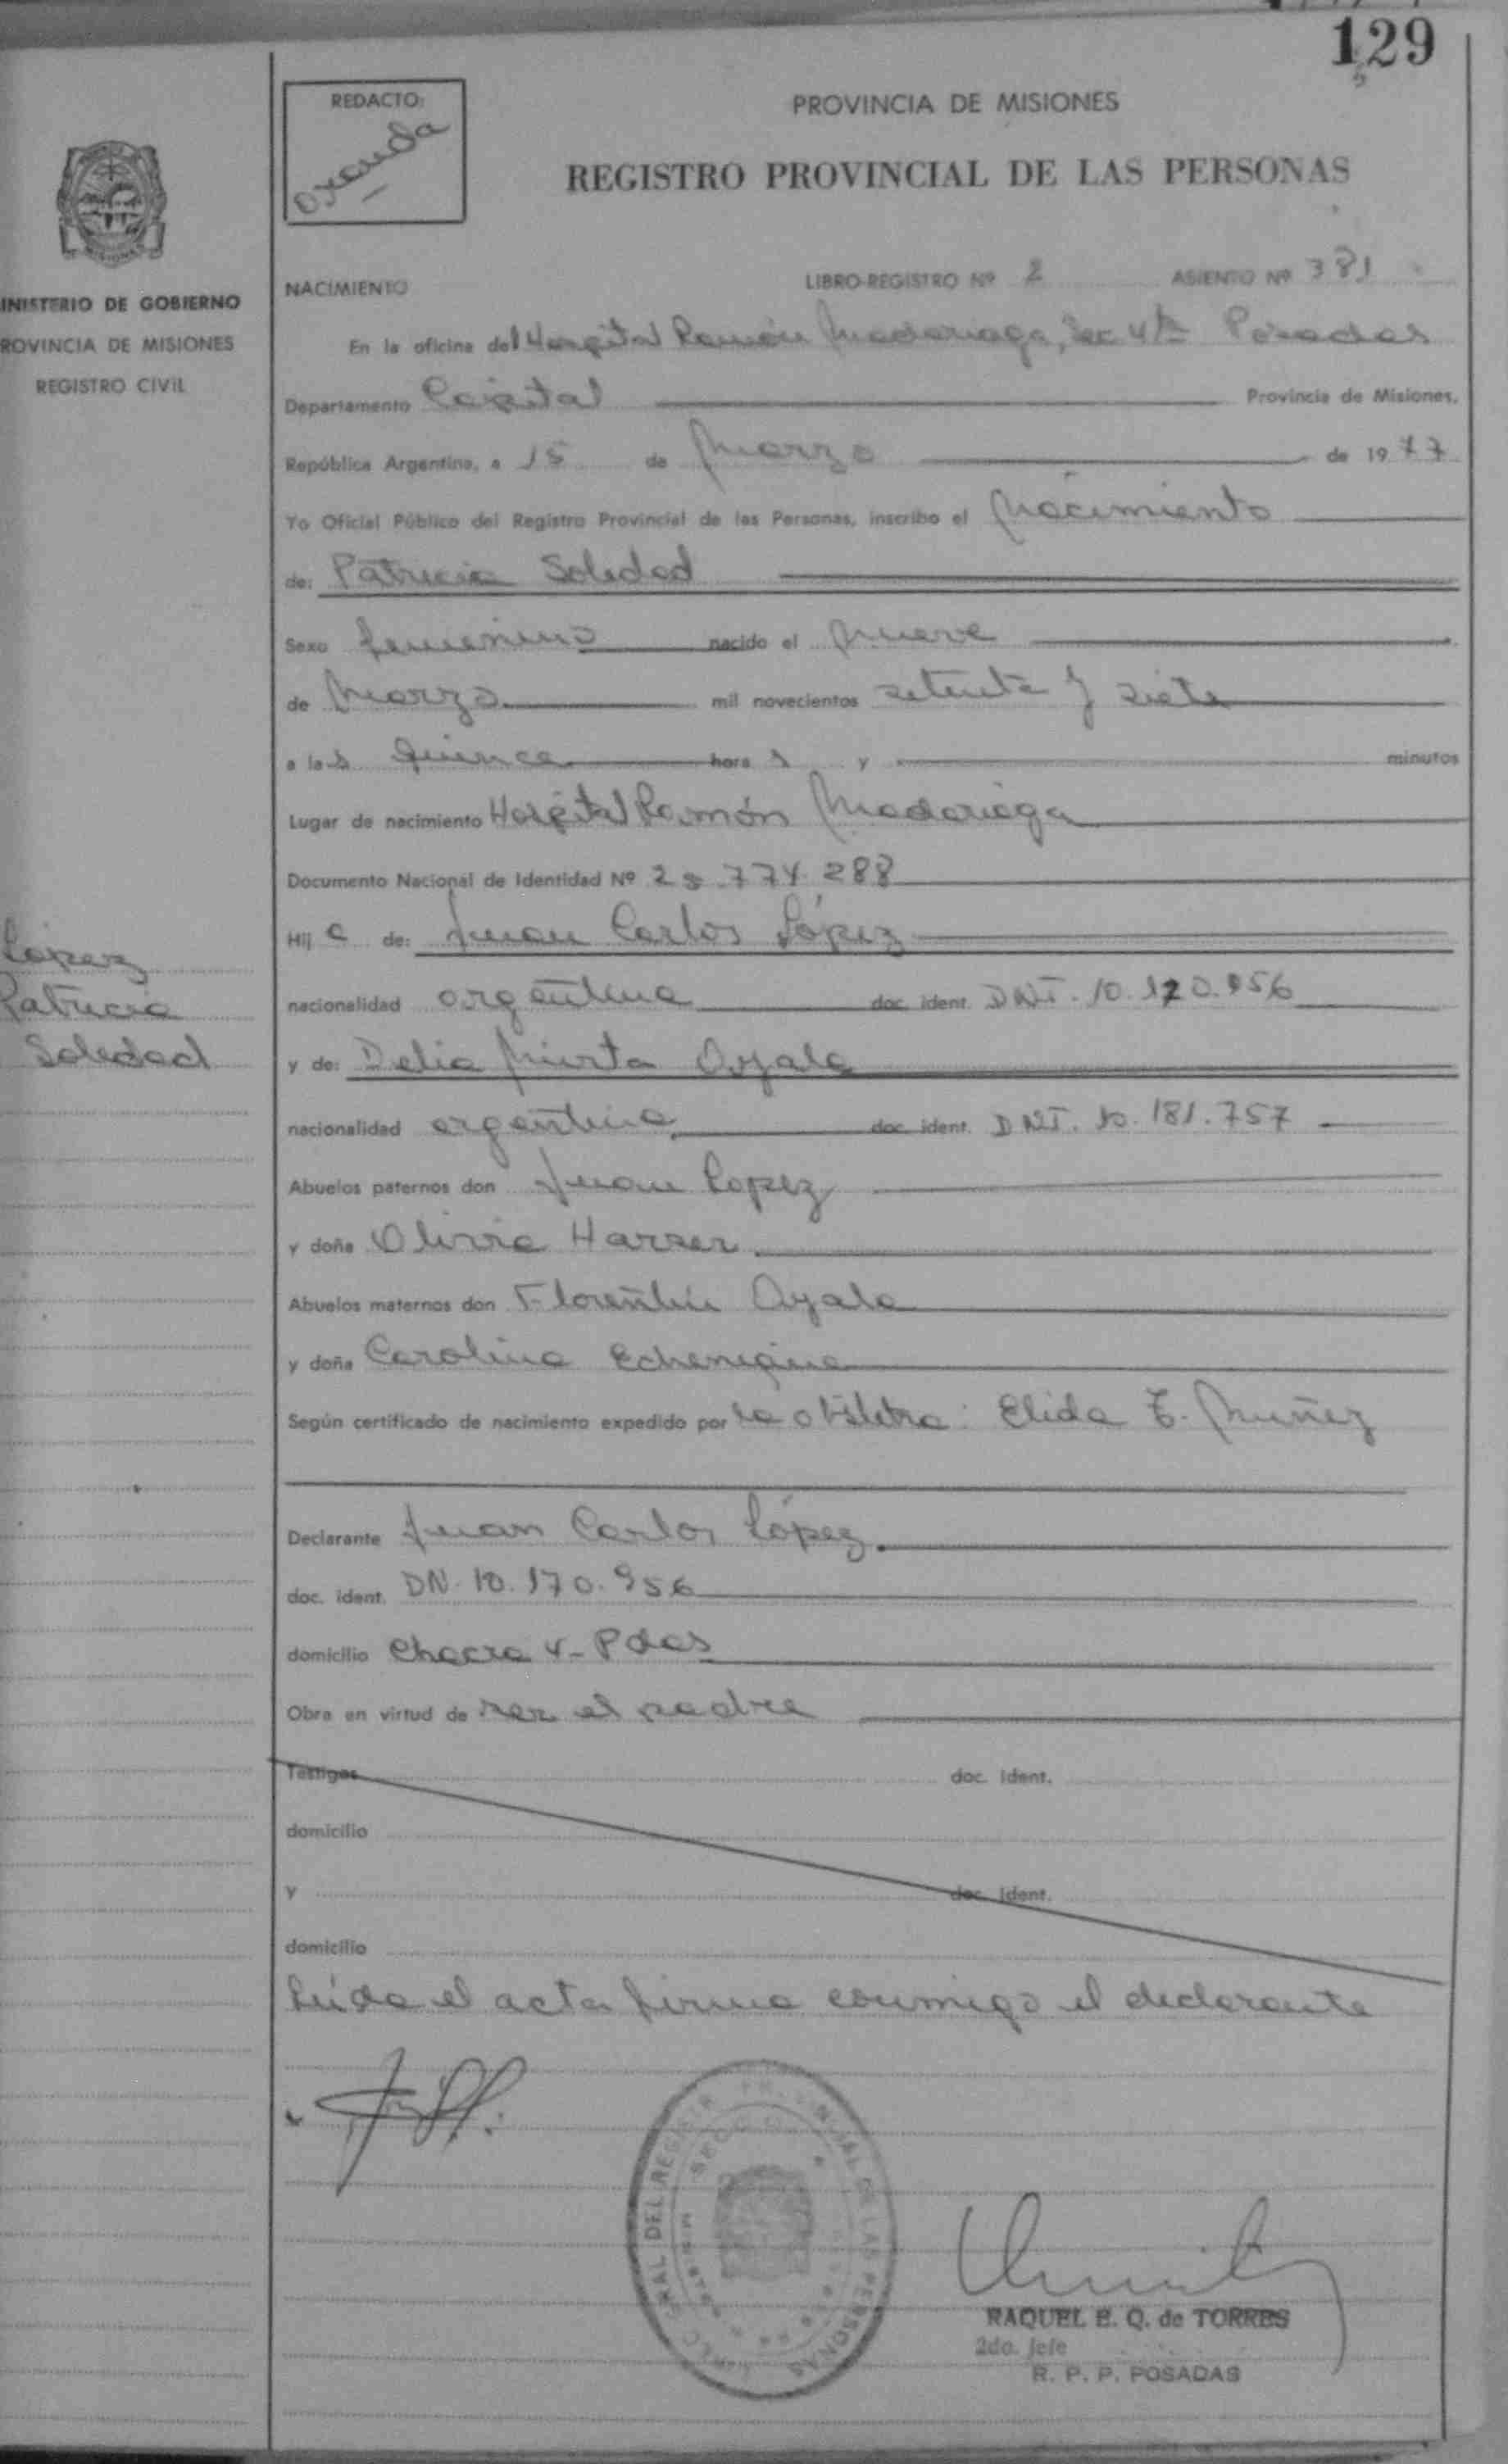 129
REDACTO:
PROVINCIA DE MISIONES
REGISTRO PROVINCIAL DE LAS PERSONAS
INISTERIO DE GOBIERNO
ROVINCIA DE MISIONES
REGISTRO CIVIL
NACIMIENTO LIBRO-REGISTRO Nº 2 ASIENTO Nº 381
En la oficina del Hospital Ramón Madariaga, Sec 4ta Posadas
Departamento Capital Provincia de Misiones,
República Argentina, a 15 de Marzo de 1977
Yo Oficial Público del Registro Provincial de las Personas, inscribo el Nacimiento
de: Patricia Soledad
Sexo femenino nacido el nueve
de Marzo mil novecientos setenta y siete
a las quince horas y minutos
Lugar de nacimiento Hospital Ramón Madariaga
Documento Nacional de Identidad Nº 25.774.288
Hija de: Juan Carlos López
López
Patricia
Soledad
nacionalidad argentina doc. ident. DNI. 10.170.956
y de: Delia Mirta Ayala
nacionalidad argentina doc. ident. DNI. 10.181.757
Abuelos paternos don Juan Lopez
y doña Olivia Harser
Abuelos maternos don Florentin Ayala
y doña Carolina Echenique
Según certificado de nacimiento expedido por la obstetra: Elida E. Nuñez
Declarante Juan Carlos López
doc. ident. DN. 10.170.956
domicilio Chacra 4 - Pdas
Obra en virtud de ser el padre
Testigos doc. Ident.
domicilio
y doc. Ident.
domicilio
Leída el acta firma conmigo el declarante
RAQUEL E. Q. de TORRES
2do. Jefe
R. P. P. POSADAS